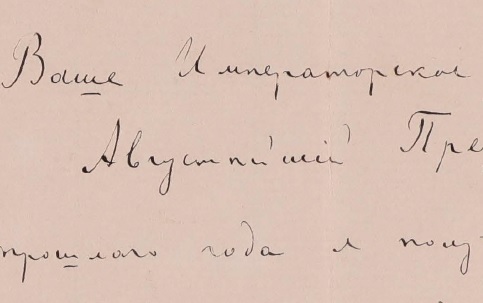 Ваше Императорское
Августѣйшій Пре
прошлаго года я полу